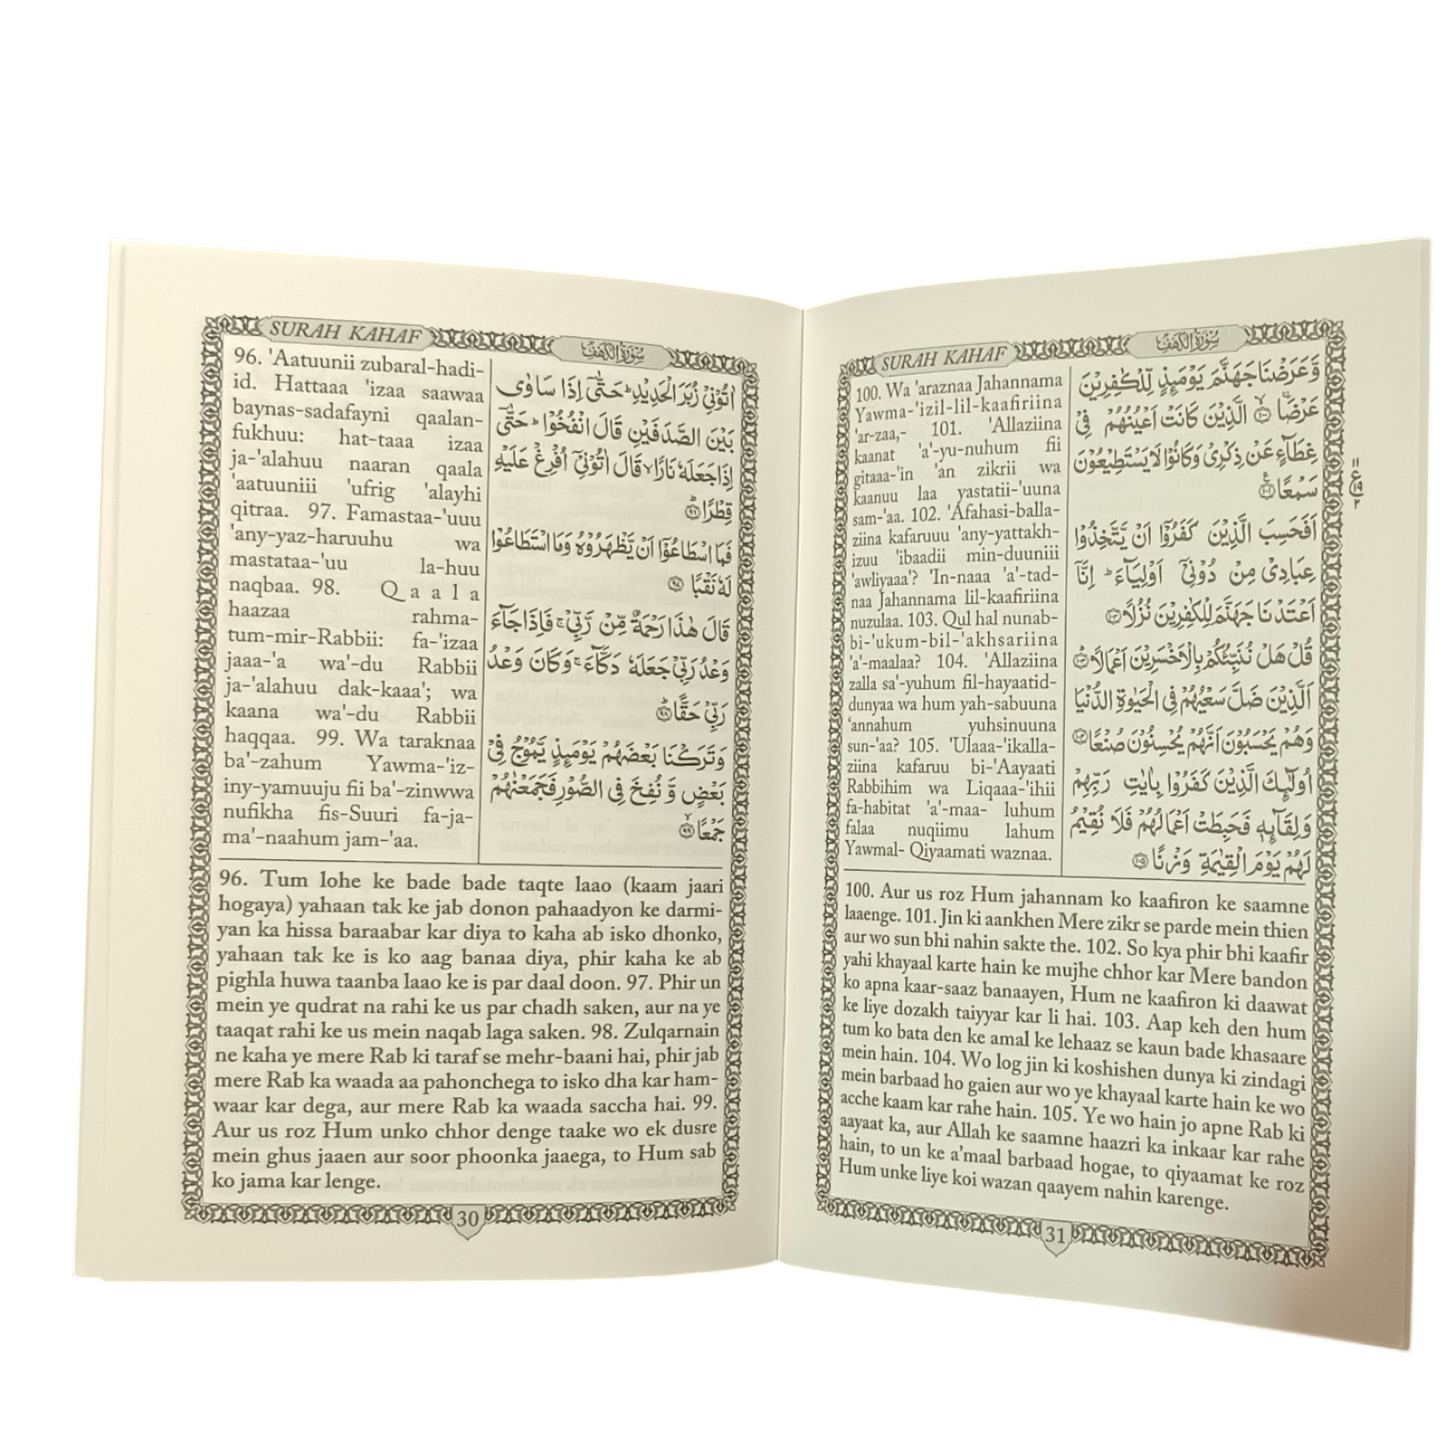 SURAH KAHAF
سورة الكهف
96. 'Aatuunii zubaral-hadi-
id. Hattaaa 'izaa saawaa
baynas-sadafayni qaalan-
fukhuu: hat-taaa izaa
ja-'alahuu naaran qaala
'aatuuniii 'ufrig 'alayhi
qitraa. 97. Famastaa-'uuu
'any-yaz-haruuhu wa
mastataa-'uu la-huu
naqbaa. 98. Q a a l a
haazaa rahma-
tum-mir-Rabbii: fa-'izaa
jaaa-'a wa'-du Rabbii
ja-'alahuu dak-kaaa'; wa
kaana wa'-du Rabbii
haqqaa. 99. Wa taraknaa
ba'-zahum Yawma-'iz-
iny-yamuuju fii ba'-zinwwa
nufikha fis-Suuri fa-ja-
ma'-naahum jam-'aa.
اٰتُوْنِیْ زُبَرَ الْحَدِیْدِ ؕ حَتّٰۤی اِذَا سَاوٰی
بَیْنَ الصَّدَفَیْنِ قَالَ انْفُخُوْا ؕ حَتّٰۤی
اِذَا جَعَلَهٗ نَارًا ۙ قَالَ اٰتُوْنِیْۤ اُفْرِغْ عَلَیْهِ
قِطْرًا ؕ ﴿۹۶﴾
فَمَا اسْطَاعُوْۤا اَنْ یَّظْهَرُوْهُ وَمَا اسْتَطَاعُوْا
لَهٗ نَقْبًا ﴿۹۷﴾
قَالَ هٰذَا رَحْمَةٌ مِّنْ رَّبِّیْ ۚ فَاِذَا جَآءَ
وَعْدُ رَبِّیْ جَعَلَهٗ دَكَّآءَ ۚ وَكَانَ وَعْدُ
رَبِّیْ حَقًّا ؕ ﴿۹۸﴾
وَتَرَكْنَا بَعْضَهُمْ یَوْمَئِذٍ یَّمُوْجُ فِیْ
بَعْضٍ وَّ نُفِخَ فِی الصُّوْرِ فَجَمَعْنٰهُمْ
جَمْعًا ۙ ﴿۹۹﴾
96. Tum lohe ke bade bade taqte laao (kaam jaari
hogaya) yahaan tak ke jab donon pahaadyon ke darmi-
yan ka hissa baraabar kar diya to kaha ab isko dhonko,
yahaan tak ke is ko aag banaa diya, phir kaha ke ab
pighla huwa taanba laao ke is par daal doon. 97. Phir un
mein ye qudrat na rahi ke us par chadh saken, aur na ye
taaqat rahi ke us mein naqab laga saken. 98. Zulqarnain
ne kaha ye mere Rab ki taraf se mehr-baani hai, phir jab
mere Rab ka waada aa pahonchega to isko dha kar ham-
waar kar dega, aur mere Rab ka waada saccha hai. 99.
Aur us roz Hum unko chhor denge taake wo ek dusre
mein ghus jaaen aur soor phoonka jaaega, to Hum sab
ko jama kar lenge.
30
SURAH KAHAF
سورة الكهف
100. Wa 'araznaa Jahannama
Yawma-'izil-lil-kaafiriina
'ar-zaa,- 101. 'Allaziina
kaanat 'a'-yu-nuhum fii
gitaaa-'in 'an zikrii wa
kaanuu laa yastatii-'uuna
sam-'aa. 102. 'Afahasi-balla-
ziina kafaruuu 'any-yattakh-
izuu 'ibaadii min-duuniii
'awliyaaa'? 'In-naaa 'a'-tad-
naa Jahannama lil-kaafiriina
nuzulaa. 103. Qul hal nunab-
bi-'ukum-bil-'akhsariina
'a'-maalaa? 104. 'Allaziina
zalla sa'-yuhum fil-hayaatid-
dunyaa wa hum yah-sabuuna
'annahum yuhsinuuna
sun-'aa? 105. 'Ulaaa-'ikalla-
ziina kafaruu bi-'Aayaati
Rabbihim wa Liqaaa-'ihii
fa-habitat 'a'-maa- luhum
falaa nuqiimu lahum
Yawmal- Qiyaamati waznaa.
وَّعَرَضْنَا جَهَنَّمَ یَوْمَئِذٍ لِّلْكٰفِرِیْنَ
عَرْضَا ۙ ﴿۱۰۰﴾ الَّذِیْنَ كَانَتْ اَعْیُنُهُمْ فِیْ
غِطَآءٍ عَنْ ذِكْرِیْ وَكَانُوْا لَا یَسْتَطِیْعُوْنَ
سَمْعًا ﴿۱۰۱﴾
اَفَحَسِبَ الَّذِیْنَ كَفَرُوْۤا اَنْ یَّتَّخِذُوْا
عِبَادِیْ مِنْ دُوْنِیْۤ اَوْلِیَآءَ ؕ اِنَّاۤ
اَعْتَدْنَا جَهَنَّمَ لِلْكٰفِرِیْنَ نُزُلًا ﴿۱۰۲﴾
قُلْ هَلْ نُنَبِّئُكُمْ بِالْاَخْسَرِیْنَ اَعْمَالًا ؕ ﴿۱۰۳﴾
اَلَّذِیْنَ ضَلَّ سَعْیُهُمْ فِی الْحَیٰوةِ الدُّنْیَا
وَهُمْ یَحْسَبُوْنَ اَنَّهُمْ یُحْسِنُوْنَ صُنْعًا ﴿۱۰۴﴾
اُولٰٓئِكَ الَّذِیْنَ كَفَرُوْا بِاٰیٰتِ رَبِّهِمْ
وَلِقَآئِهٖ فَحَبِطَتْ اَعْمَالُهُمْ فَلَا نُقِیْمُ
لَهُمْ یَوْمَ الْقِیٰمَةِ وَزْنًا ﴿۱۰۵﴾
100. Aur us roz Hum jahannam ko kaafiron ke saamne
laaenge. 101. Jin ki aankhen Mere zikr se parde mein thien
aur wo sun bhi nahin sakte the. 102. So kya phir bhi kaafir
yahi khayaal karte hain ke mujhe chhor kar Mere bandon
ko apna kaar-saaz banaayen, Hum ne kaafiron ki daawat
ke liye dozakh taiyyar kar li hai. 103. Aap keh den hum
tum ko bata den ke amal ke lehaaz se kaun bade khasaare
mein hain. 104. Wo log jin ki koshishen dunya ki zindagi
mein barbaad ho gaien aur wo ye khayaal karte hain ke wo
acche kaam kar rahe hain. 105. Ye wo hain jo apne Rab ki
aayaat ka, aur Allah ke saamne haazri ka inkaar kar rahe
hain, to un ke a'maal barbaad hogae, to qiyaamat ke roz
Hum unke liye koi wazan qaayem nahin karenge.
31